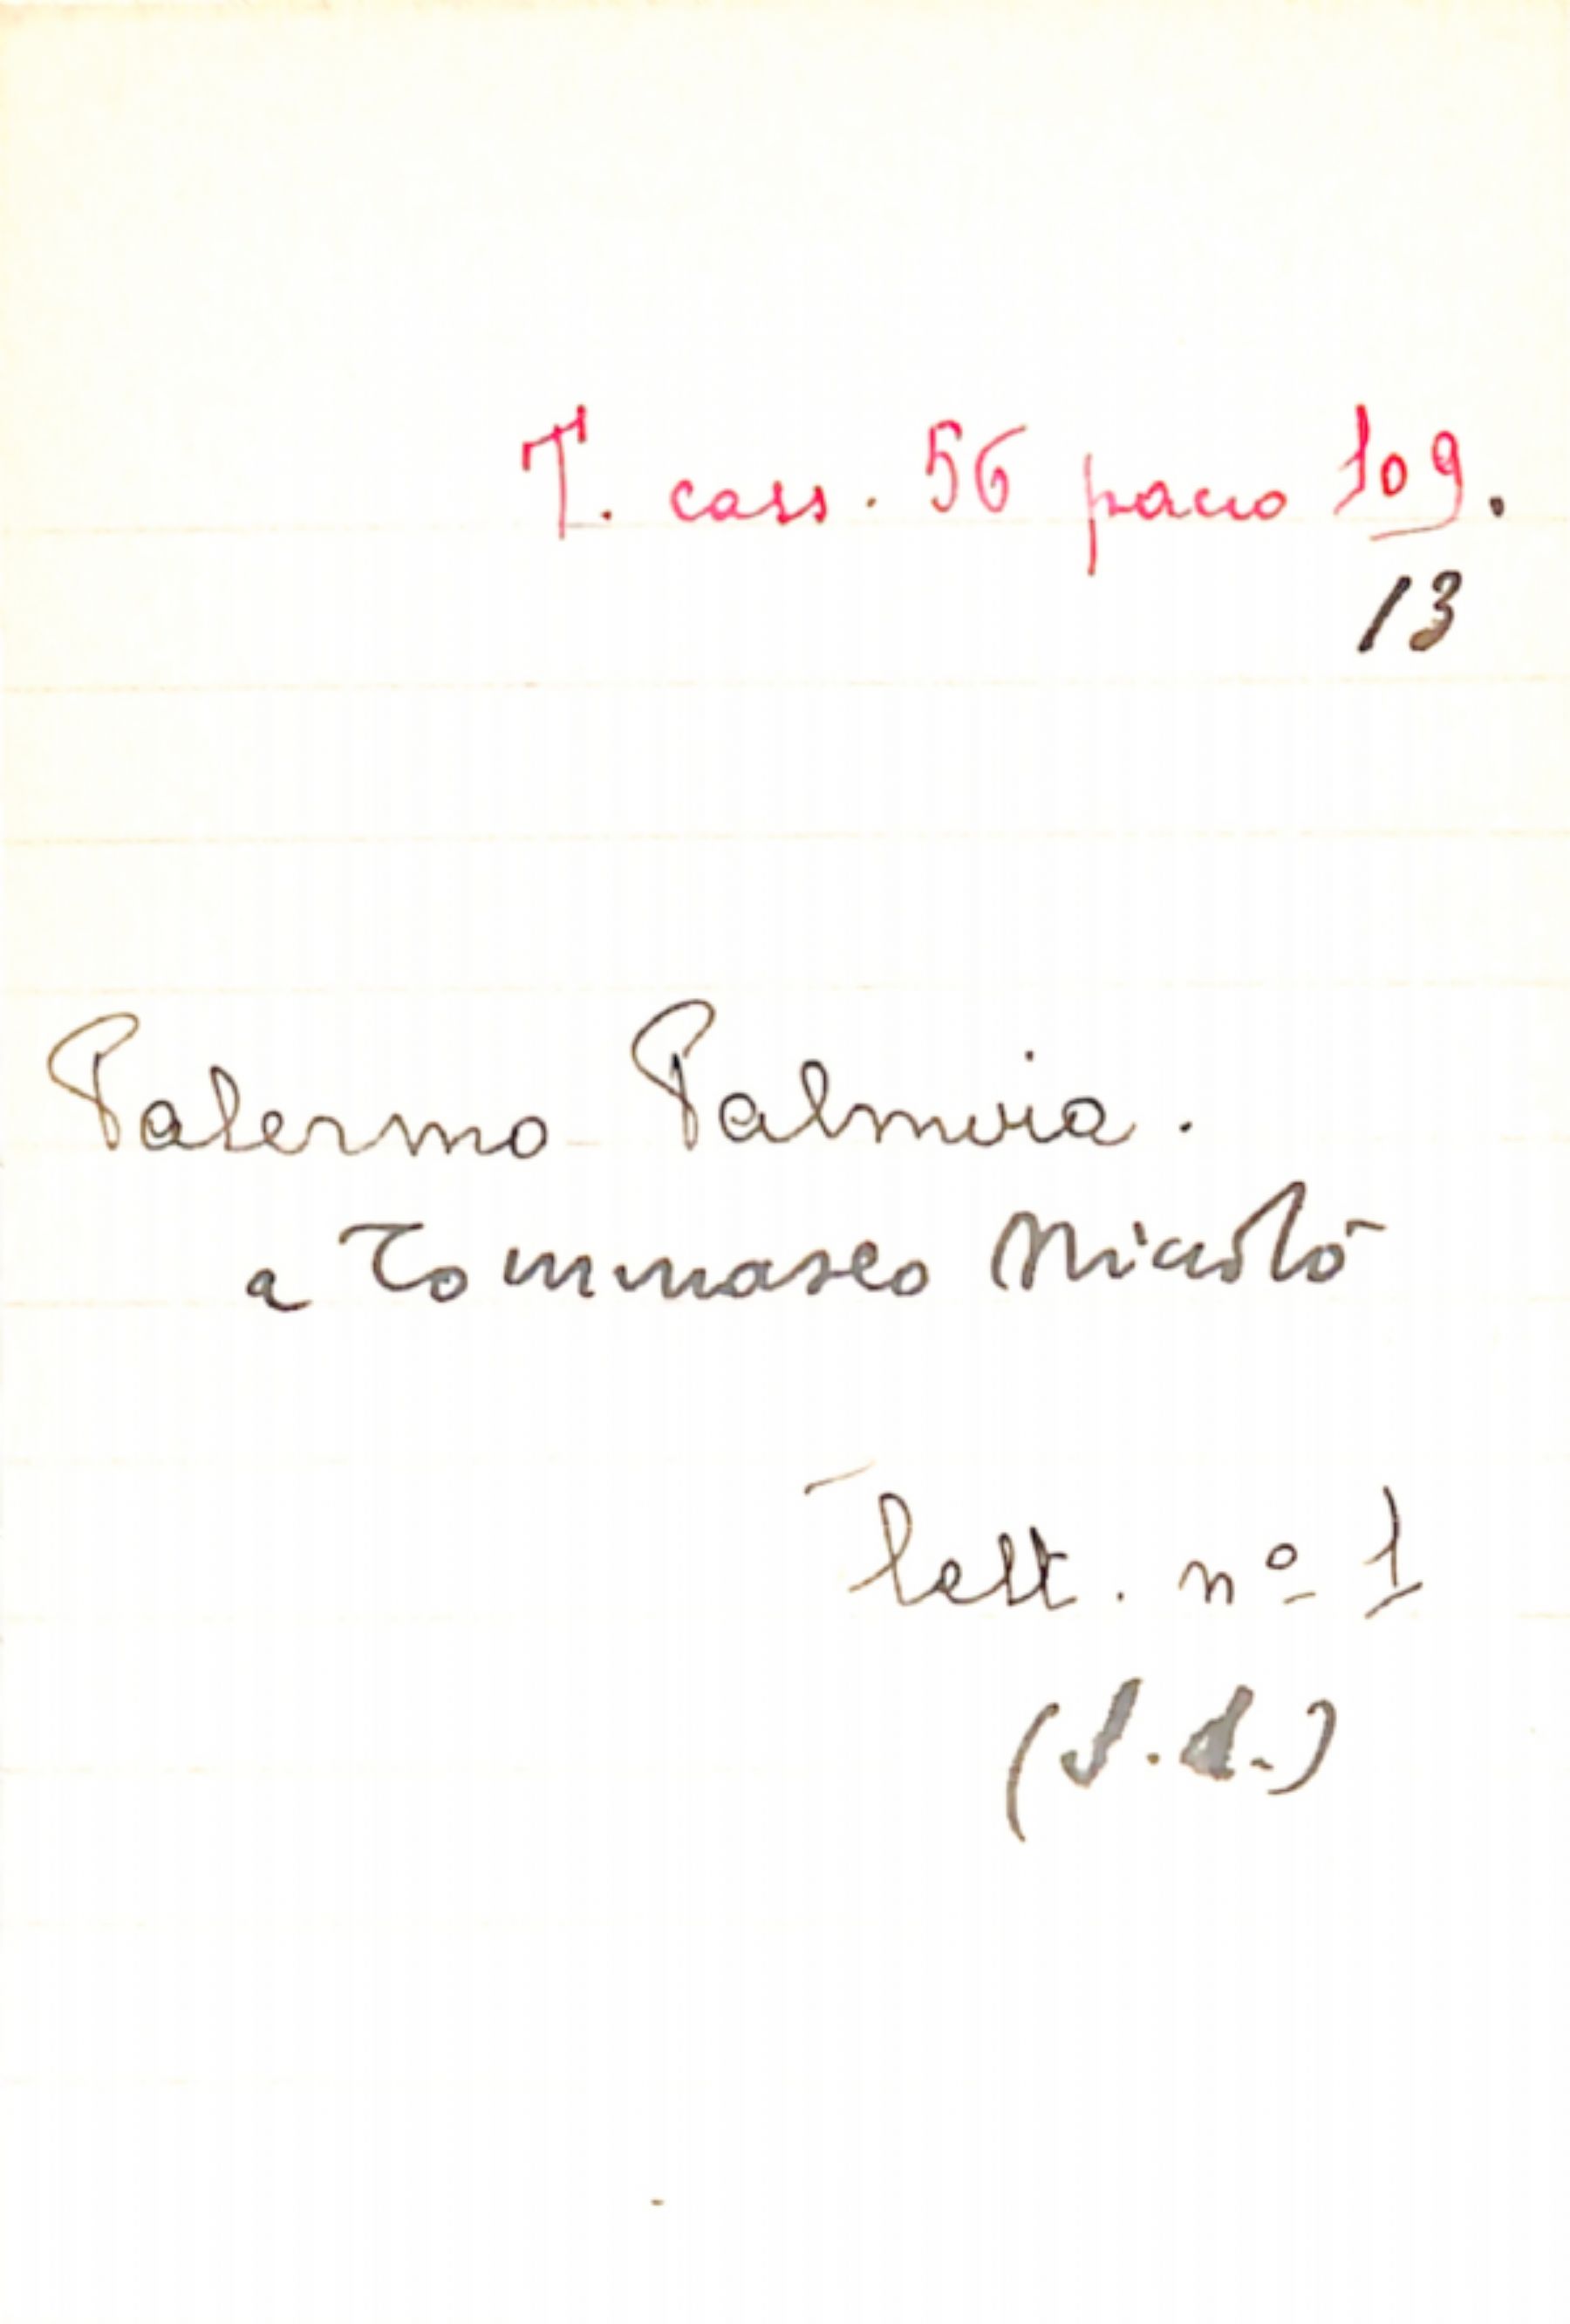 T. cass. 56 pacco 109.
13
Palermo Palmira.
a Tommaseo Niccolò
lett. nº 1
(s.d.)